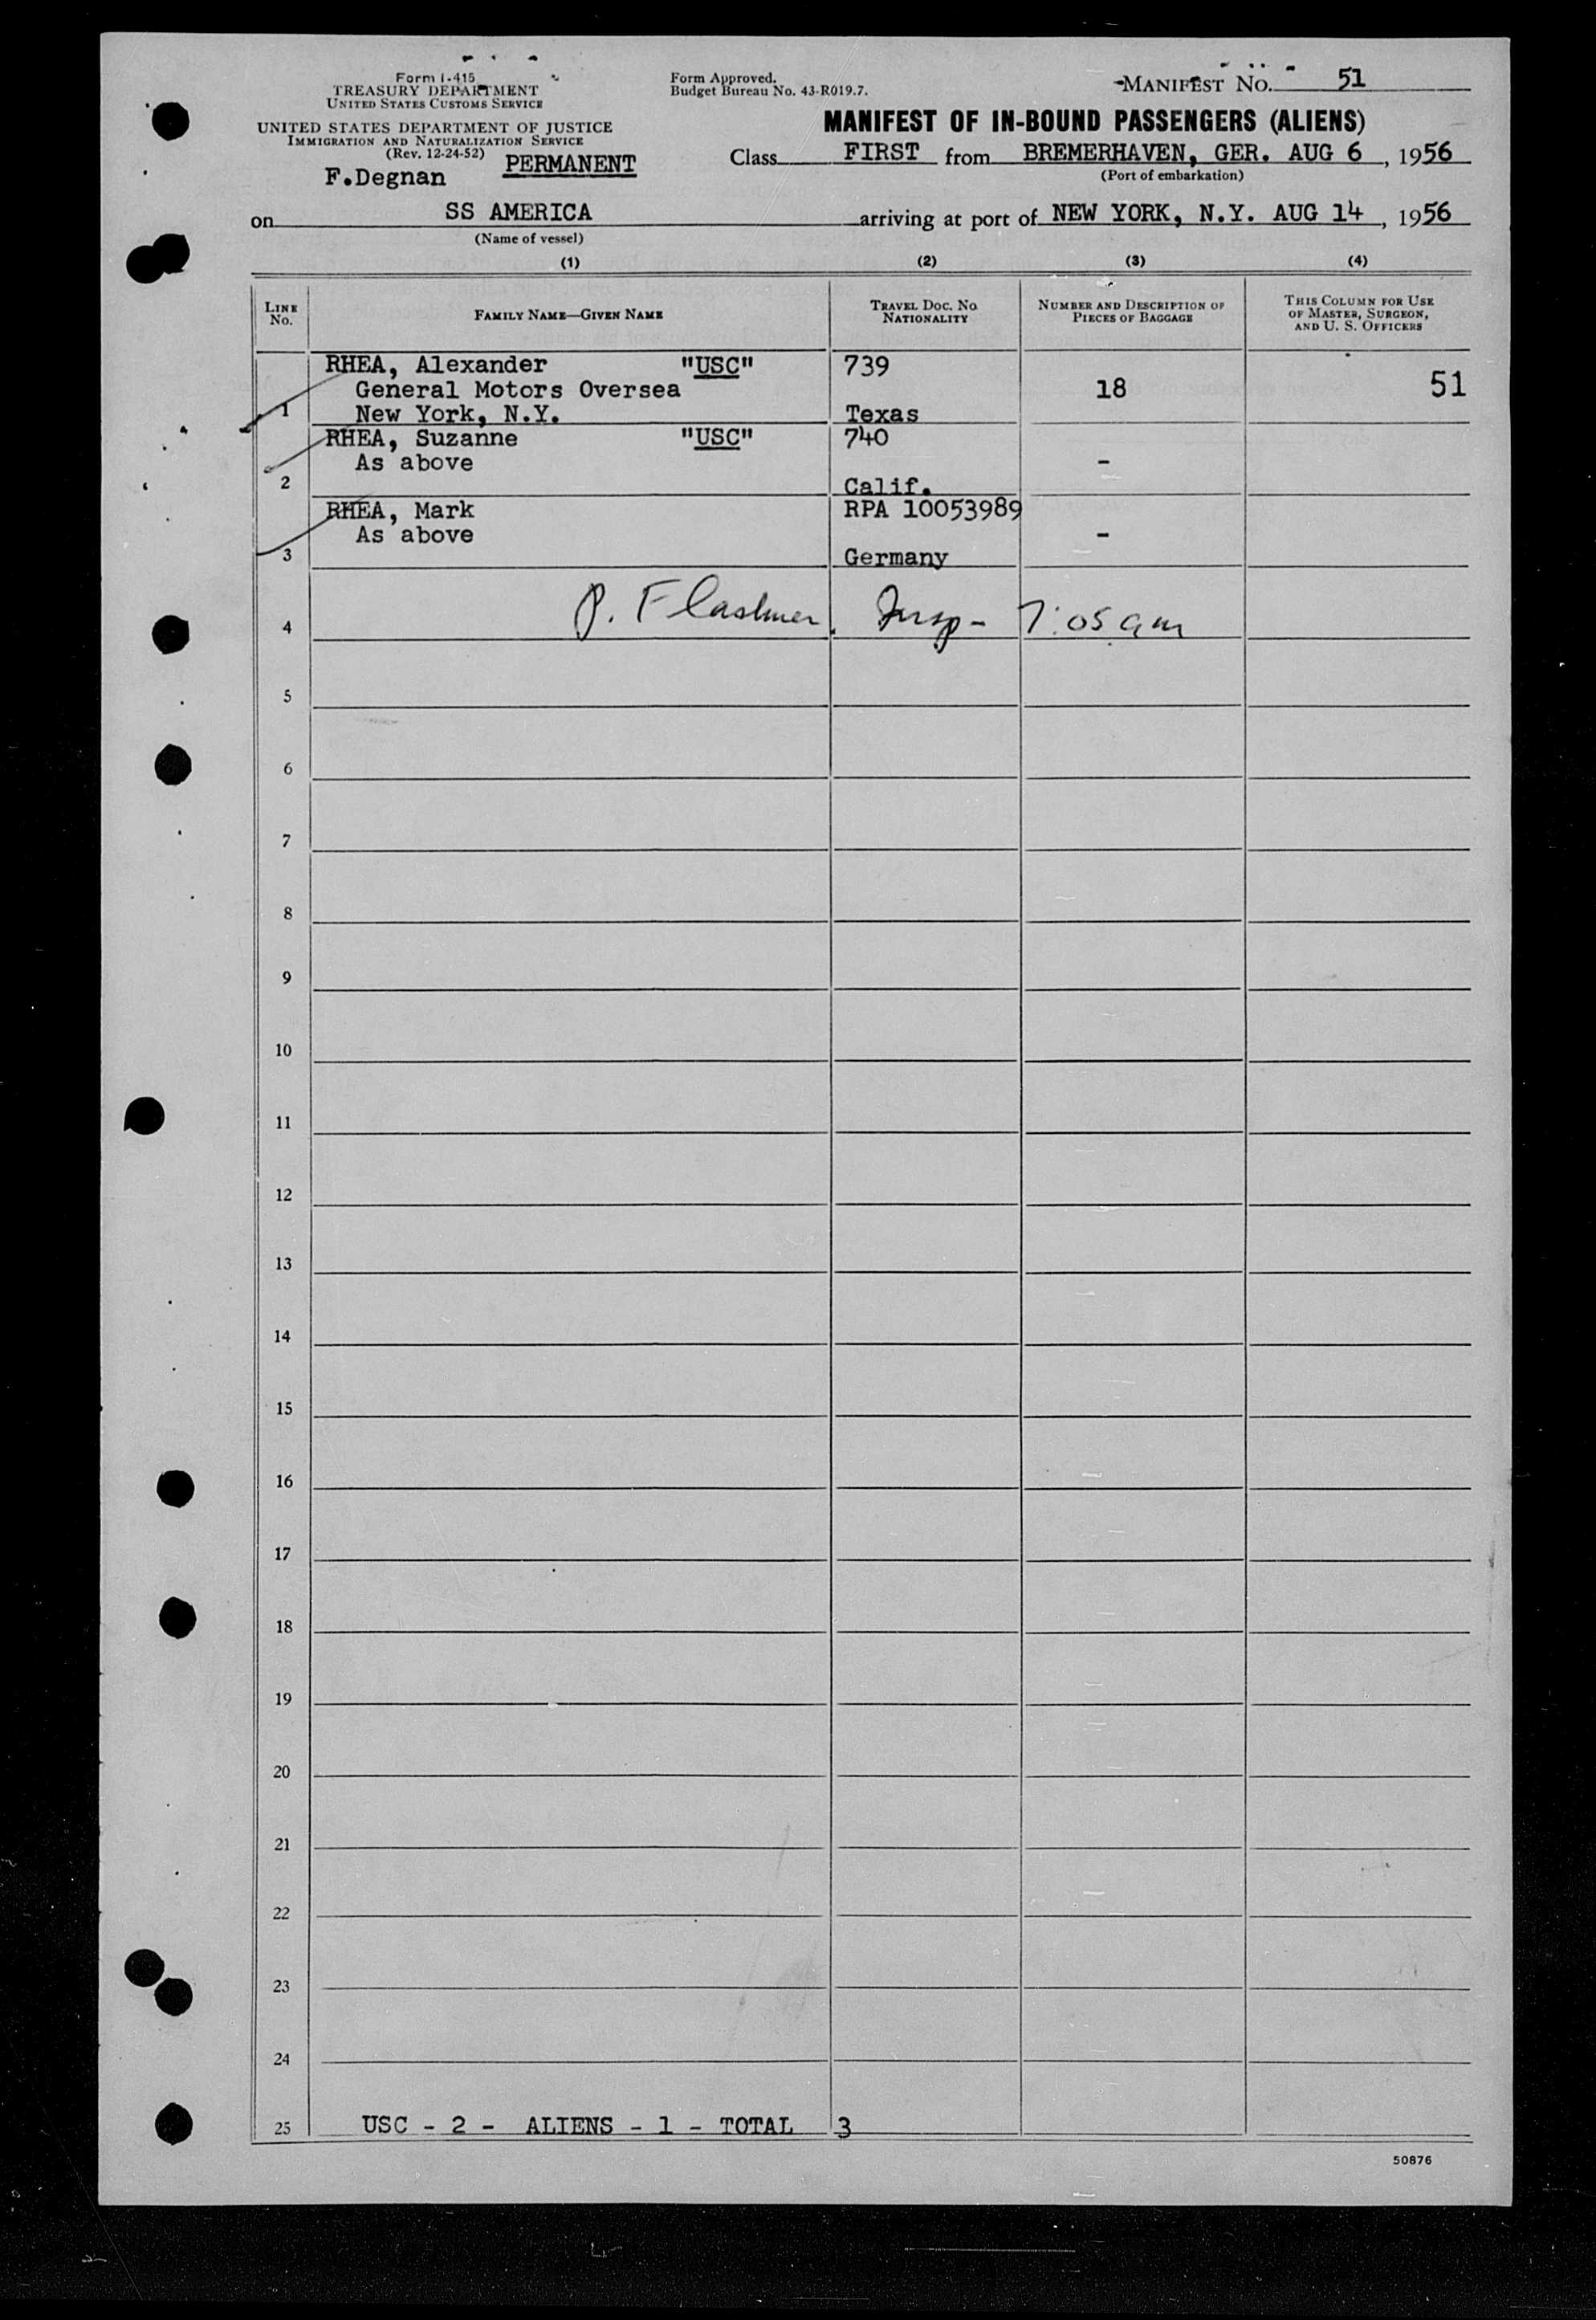 Form I-415
TREASURY DEPARTMENT
UNITED STATES CUSTOMS SERVICE
UNITED STATES DEPARTMENT OF JUSTICE
IMMIGRATION AND NATURALIZATION SERVICE
(Rev. 12-24-52)
PERMANENT
F.Degnan
Form Approved.
Budget Bureau No. 43-R019.7.
MANIFEST NO. 51
MANIFEST OF IN-BOUND PASSENGERS (ALIENS)
Class FIRST from BREMERHAVEN, GER. AUG 6, 1956
(Port of embarkation)
on SS AMERICA arriving at port of NEW YORK, N.Y. AUG 14, 1956
(Name of vessel)
(1) (2) (3) (4)
LINE No. FAMILY NAME—GIVEN NAME TRAVEL DOC. NO. NATIONALITY NUMBER AND DESCRIPTION OF PIECES OF BAGGAGE THIS COLUMN FOR USE OF MASTER, SURGEON, AND U. S. OFFICERS
RHEA, Alexander "USC" 739
General Motors Oversea 18 51
1 New York, N.Y. Texas
RHEA, Suzanne "USC" 740
As above -
2 Calif.
RHEA, Mark RPA 10053989
As above -
3 Germany
4 P. Flashner, Insp- 7:05 am
5
6
7
8
9
10
11
12
13
14
15
16
17
18
19
20
21
22
23
24
25 USC - 2 - ALIENS - 1 - TOTAL 3
50876